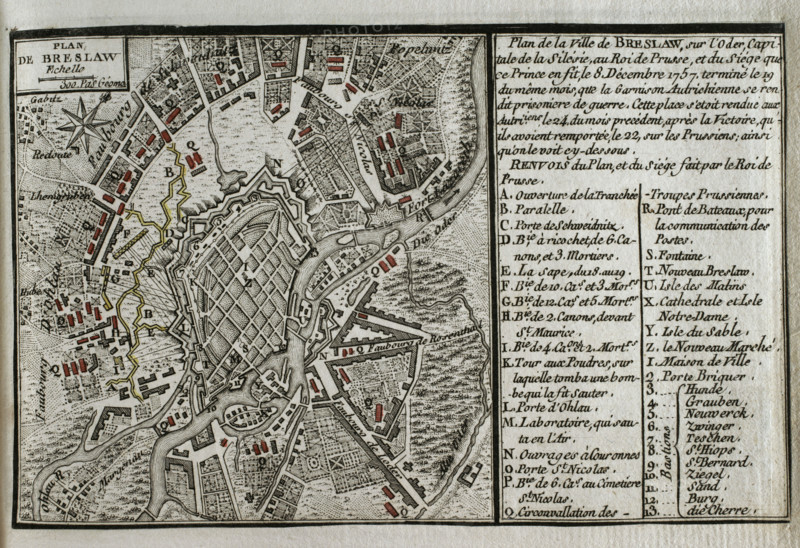 PLAN,
DE BRESLAW
Echelle
300. Pas Géome.
Gabitz
Redoute
Hube
Faubourg
d'Ohlau
Faubourg
Popelwitz
Faubourg
St. Nicolas
St. Nicolas
Die Oder
Faubourg de Rosenthal
Faubourg
Alte Oder
Ohlau R.
Plan de la Ville de BRESLAW, sur l'Oder, Capi-
tale de la Silésie, au Roi de Prusse, et du Siége que
ce Prince en fit, le 8. Décembre 1757. terminé le 19
du même mois, que la Garnison Autrichienne se ren-
dit prisoniere de guerre. Cette place s'étoit rendue aux
Autri.iens le 24. du mois precedent, après la Victoire, qu-
ils avoient remportée, le 22, sur les Prussiens; ainsi
qu'on le voit cy-dessous.
RENVOIS du Plan, et du Siége fait par le Roi de
Prusse.
A. Ouverture de la Tranchée
B. Paralelle.
C. Porte de Schweidnitz.
D. B.ie à ricochet, de 6. Ca-
nons, et 3. Mortiers.
E. La sape, du 18. au 19.
F. B.ie de 10. Ca.s et 3 Mor.rs
G. B.ie de 12. Ca.s et 5. Mort.rs
H. B.ie de 2. Canons, devant
St. Maurice.
I. B.ie de 4. Ca.ons et 2. Mort.rs
K. Tour aux Poudres, sur
laquelle tomba une bom-
be qui la fit Sauter.
L. Porte d'Ohlau.
M. Laboratoire, qui sau-
ta en l'Air.
N. Ouvrages à Couronnes
O. Porte St. Nicolas.
P. B.ie de 6. Ca.s au Cimetiere
St. Nicolas.
Q. Circonvallation des -
- Troupes Prussiennes.
R. Pont de Bateaux, pour
la communication des
Postes.
S. Fontaine.
T. Nouveau Breslaw.
U. Isle des Mulins
X. Cathédrale et Isle
Notre-Dame.
Y. Isle du Sable.
Z. le Nouveau Marché.
1. Maison de Ville.
2. Porte Briquer.
Bastions
3. ... Hunde.
4. ... Grauben.
5. ... Neuwerck.
6. ... Zwinger.
7. ... Teschen.
8. ... St. Hiops.
9. ... St. Bernard.
10. ... Ziegel.
11. ... Sand.
12. ... Burg.
13. ... die Cherre.